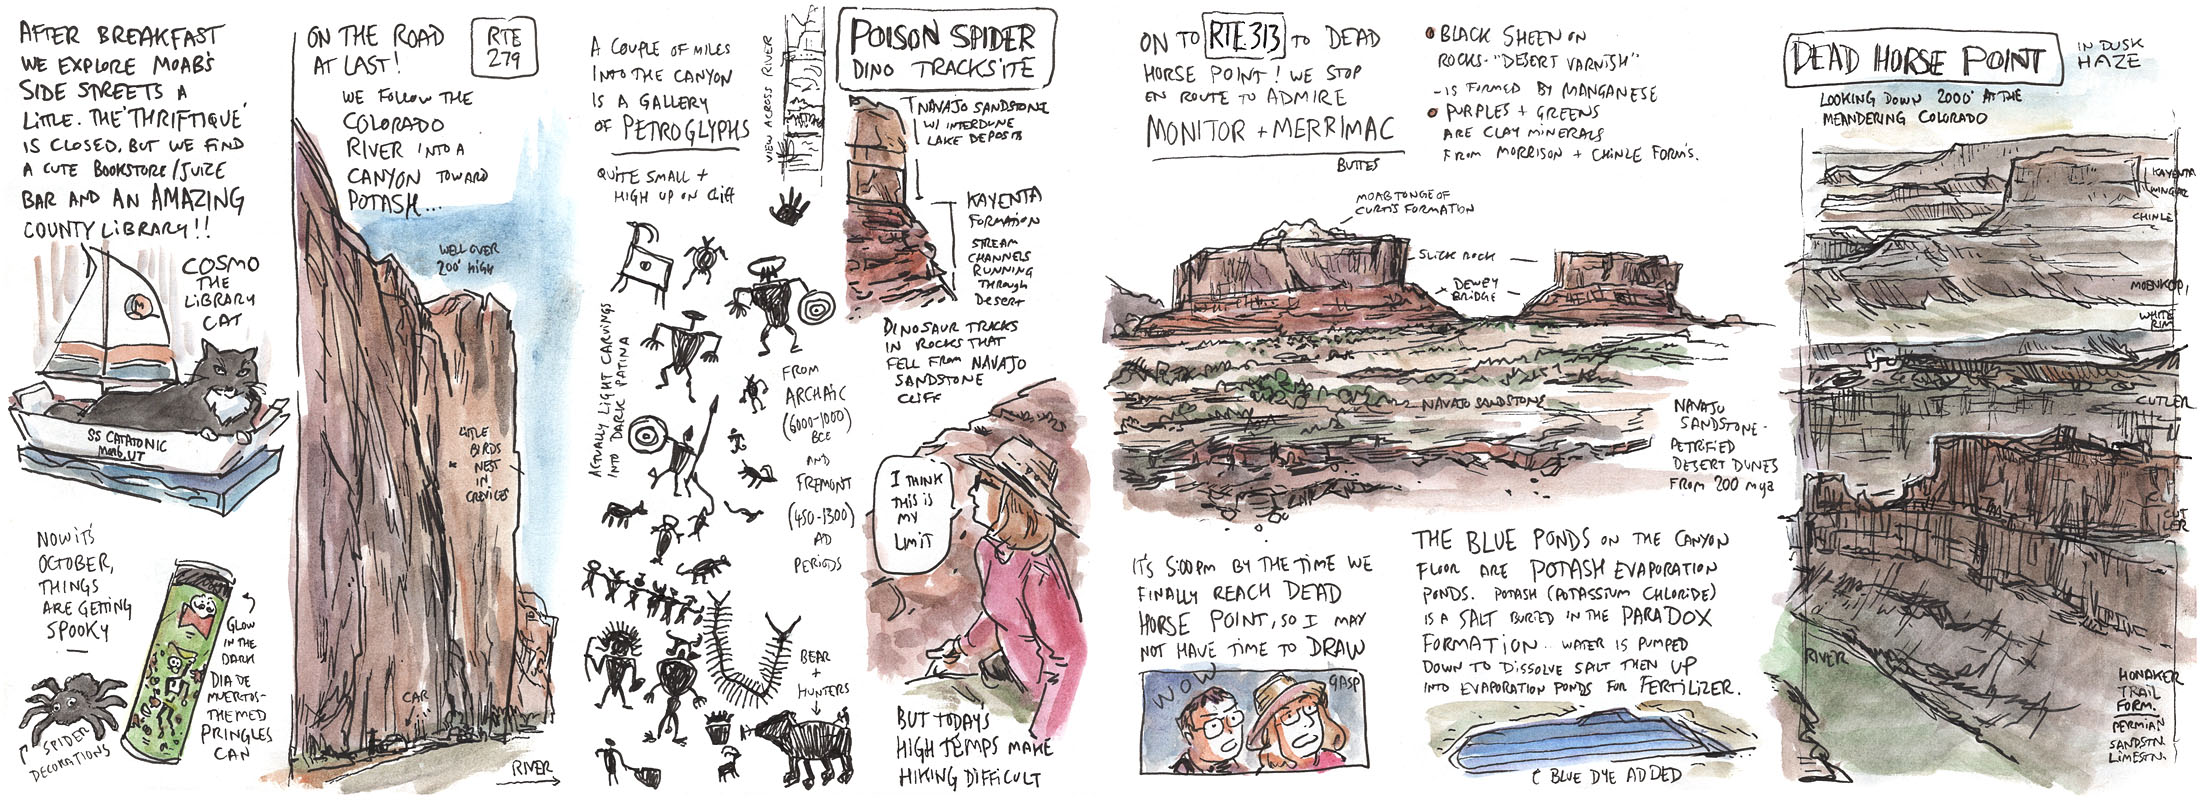 AFTER BREAKFAST
WE EXPLORE MOAB'S
SIDE STREETS A
LITTLE. THE 'THRIFTIQUE'
IS CLOSED, BUT WE FIND
A CUTE BOOKSTORE/JUICE
BAR AND AN AMAZING
COUNTY LIBRARY!!
COSMO
THE
LIBRARY
CAT
SS CATATONIC
MOAB, UT
NOW IT'S
OCTOBER,
THINGS
ARE GETTING
SPOOKY
SPIDER
DECORATIONS
GLOW
IN THE
DARK
DIA DE
MUERTOS-
THEMED
PRINGLES
CAN
ON THE ROAD
AT LAST!
RTE
279
WE FOLLOW THE
COLORADO
RIVER INTO A
CANYON TOWARD
POTASH...
WELL OVER
200' HIGH
LITTLE
BIRDS
NEST
IN
CREVICES
CAR
RIVER
A COUPLE OF MILES
INTO THE CANYON
IS A GALLERY
OF PETROGLYPHS
QUITE SMALL +
HIGH UP ON CLIFF
VIEW ACROSS RIVER
ACTUALLY LIGHT CARVINGS
INTO DARK PATINA
FROM
ARCHAIC
(6000-1000)
BCE
AND
FREMONT
(450-1300)
AD
PERIODS
BEAR
+
HUNTERS
POISON SPIDER
DINO TRACKSITE
NAVAJO SANDSTONE
W/ INTERDUNE
LAKE DEPOSITS
KAYENTA
FORMATION
STREAM
CHANNELS
RUNNING
THROUGH
DESERT
DINOSAUR TRACKS
IN ROCKS THAT
FELL FROM NAVAJO
SANDSTONE
CLIFF
I THINK
THIS IS
MY
LIMIT
BUT TODAY'S
HIGH TEMPS MAKE
HIKING DIFFICULT
ON TO RTE 313 TO DEAD
HORSE POINT! WE STOP
EN ROUTE TO ADMIRE
MONITOR + MERRIMAC
BUTTES
BLACK SHEEN ON
ROCKS - "DESERT VARNISH"
- IS FORMED BY MANGANESE
PURPLES + GREENS
ARE CLAY MINERALS
FROM MORRISON + CHINLE FORM'S.
MOAB TONGE OF
CURTIS FORMATION
SLICK ROCK
DEWEY
BRIDGE
NAVAJO SANDSTONE
NAVAJO
SANDSTONE -
PETRIFIED
DESERT DUNES
FROM 200 mya
IT'S 5:00PM BY THE TIME WE
FINALLY REACH DEAD
HORSE POINT, SO I MAY
NOT HAVE TIME TO DRAW
WOW
GASP
THE BLUE PONDS ON THE CANYON
FLOOR ARE POTASH EVAPORATION
PONDS. POTASH (POTASSIUM CHLORIDE)
IS A SALT BURIED IN THE PARADOX
FORMATION... WATER IS PUMPED
DOWN TO DISSOLVE SALT THEN UP
INTO EVAPORATION PONDS FOR FERTILIZER.
BLUE DYE ADDED
DEAD HORSE POINT
IN DUSK
HAZE
LOOKING DOWN 2000' AT THE
MEANDERING COLORADO
KAYENTA
WINGAT
CHINLE
MOENKOPI
WHITE
RIM
CUTLER
CUT
LER
RIVER
HONAKER
TRAIL
FORM.
PERMIAN
SANDSTN.
LIMESTN.